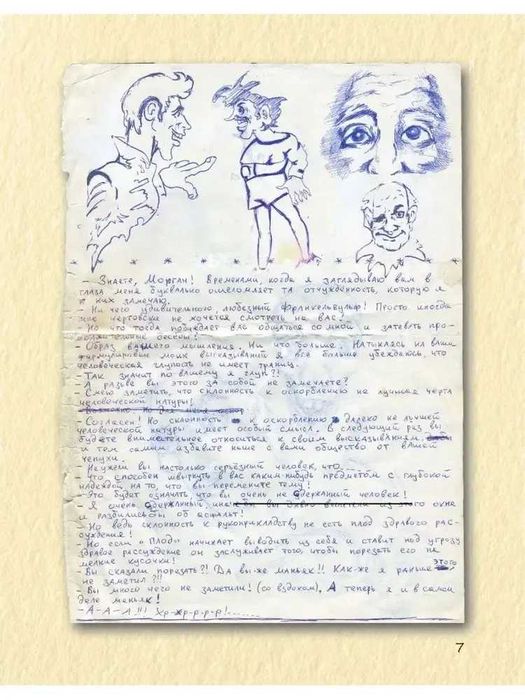 - Знаете, Морган! Временами, когда я заглядываю вам в
глаза меня буквально ошеломляет та отчужденность, которую я
в них замечаю.
- Ни чего удивительного, любезный Форликельвульф! Просто иногда
мне чертовски не хочется смотреть на вас.
- Но что тогда побуждает вас общаться со мной и затевать про-
должительные беседы?
- Образ вашего мышления. Ни что больше. Натыкаясь на ваши
формулировки моих высказываний я все больше убеждаюсь, что
человеческая глупость не имеет границ.
- Так значит по вашему я глуп?!
- А разве вы этого за собой не замечаете?
- Смею заметить, что склонность к оскорблению не лучшая черта
человеческой натуры!
- Согласен! Но склонность к оскорблению далеко не лучшей
человеческой натуры имеет особый смысл. В следующий раз вы
будете внимательнее относиться к своим высказываниям,
и тем самим избавите ныне с вами общество от вашей
чепухи.
- Неужели вы настолько серьёзный человек, что
- Что способен швырнуть в вас каким-нибудь предметом с глубокой
надеждой на то, что вы перемените тему!
- Это будет означать что вы очень не сдержанный человек!
- Я очень сдержанный, ина из окна
и разбились бы об асфальт!
- Но ведь склонность к рукоприкладству не есть плод здравого рас-
суждения!
- Но если "Плод" начинает выводить из себя и ставит под угрозу
здравое рассуждение он заслуживает того, чтобы порезать его на
мелкие кусочки!
- Вы сказали порезать?! Да вы-же маньяк!! Как-же я раньше этого
не заметил?!!
- Вы много чего не заметили! (со вздохом), А теперь я и в самом
деле маньяк!
- А-А-А!!! Хр-хр-р-р-р!......
7